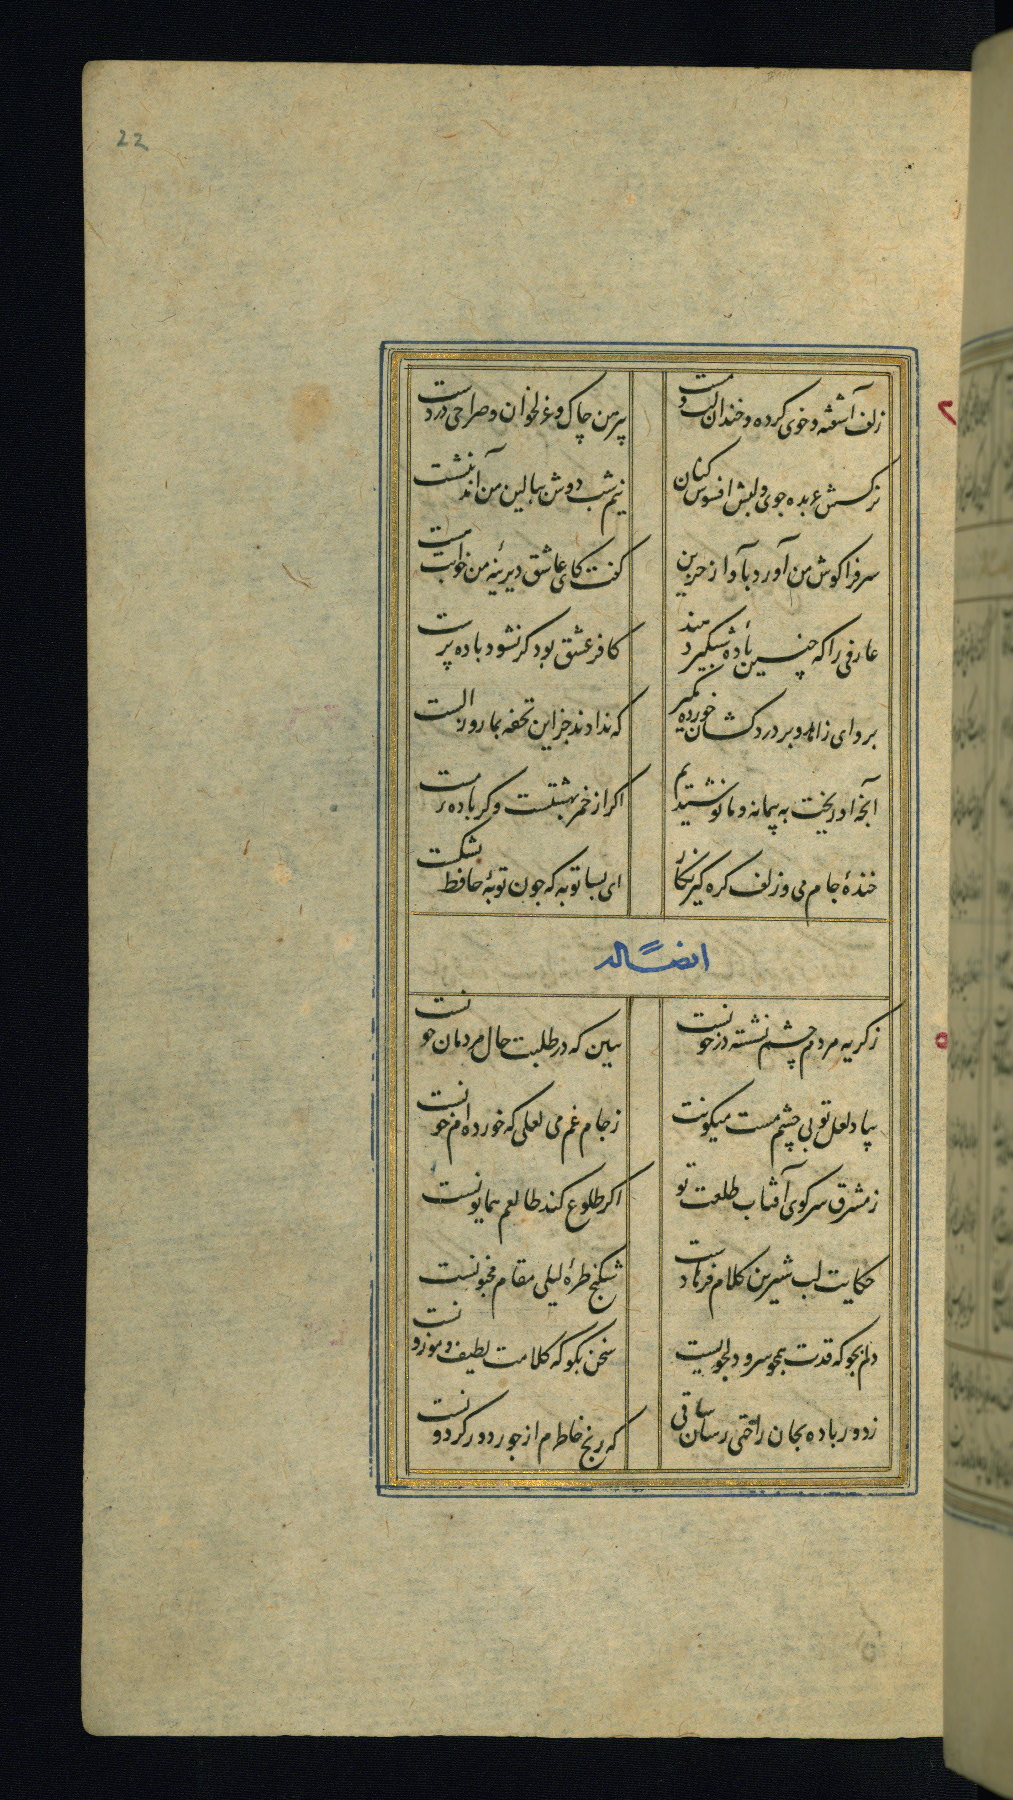 22
زلف آشفته و خوی کرده و خندان لب و مست
پیرهن چاک و غزلخوان و صراحی در دست
نرکسش عربده جوی و لبش افسوس کنان
نیم شب دوش ببالین من آمد بنشست
سر فرا کوش من آورد بآواز حزین
کفت کای عاشق دیرینهٔ من خوابت هست
عارفی را که چنین بادهٔ شبکیر دهند
کافر عشق بود کر نشود باده پرست
برو ای زاهد و بر دردکشان خورده مکیر
که ندادند جز این تحفه بما روز الست
آنچه او ریخت به پیمانه و ما نوشیدیم
اکر از خمر بهشتست و کر بادهٔ مست
خندهٔ جام می و زلف کره کیر نکار
ای بسا توبه که جون توبهٔ حافظ بشکست
ایضاً له
ز کریه مردم چشمم نشسته در خونست
ببین که در طلبت حال مردمان چونست
بیاد لعل تو بی چشم مست میکونت
ز جام غم می لعلی که خورده ام خونست
ز مشرق سر کوی آفتاب طلعت تو
اکر طلوع کند طالعم همایونست
حکایت لب شیرین کلام فرهادست
شکنج طرهٔ لیلی مقام مجنونست
دلم بجو که قدت همجو سرو دلجویست
سخن بکو که کلامت لطیف و موزونست
ز دور باده بجان راحتی رسان ساقی
که رنج خاطرم از جور دور کردونست